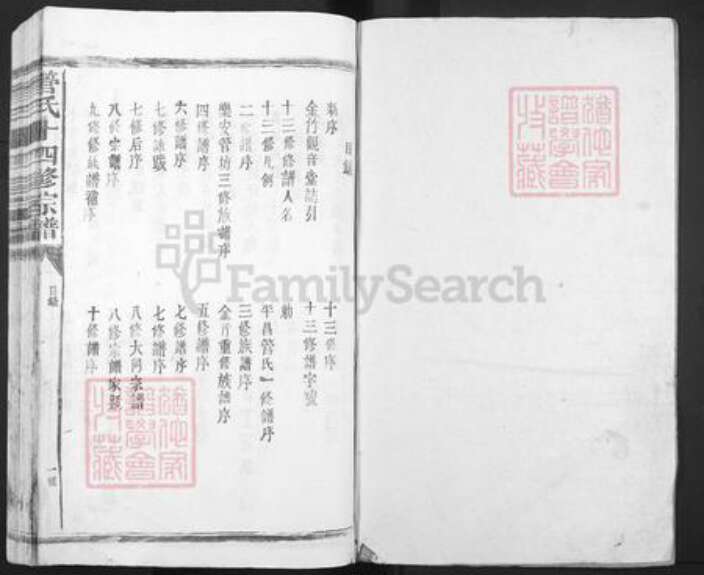 目錄
新序
十三修序
金竹觀音堂誌引
十三修譜字號
十三修譜人名
勅
十三修凡例
平昌管氏一修譜序
二修譜序
三修族譜序
樂安管坊三修族譜序
金斤重修族譜序
四修譜序
五修譜序
六修譜序
七修譜序
七修詠跋
七修譜序
七修后序
八修大同宗譜
八修宗譜序
八修宗譜家
九修修族譜序
十修譜序
管氏十四修宗譜
目錄
一號
FamilySearch
譜學會
收藏
譜學會
收藏